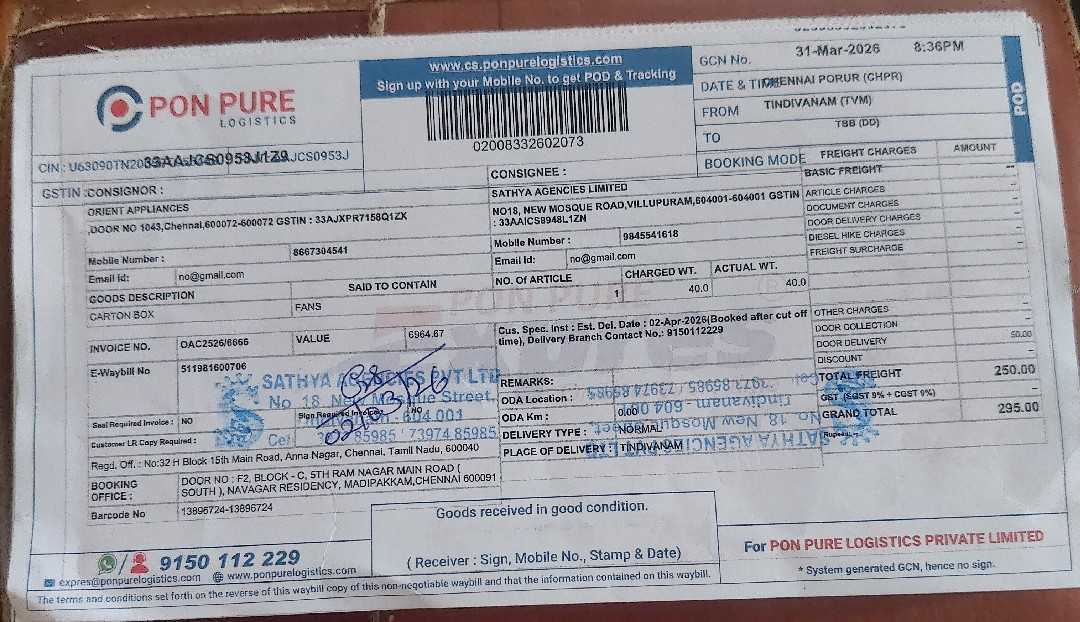 PON PURE
LOGISTICS
www.cs.ponpurelogistics.com
Sign up with your Mobile No. to get POD & Tracking
02008332602073
GCN No.
31-Mar-2026 8:36PM
DATE & TIME
CHENNAI PORUR (CHPR)
FROM
TINDIVANAM (TVM)
TO
TBB (DD)
BOOKING MODE
POD
CIN :
GSTIN :
33AAJCS0953J1Z9
CONSIGNOR :
ORIENT APPLIANCES
,DOOR NO 1043,Chennai,600072-600072 GSTIN : 33AJXPR7158Q1ZX
Mobile Number : 8667304541
Email Id: no@gmail.com
CONSIGNEE :
SATHYA AGENCIES LIMITED
NO18, NEW MOSQUE ROAD,VILLUPURAM,604001-604001 GSTIN
: 33AAICS8948L1ZN
Mobile Number : 9845541618
Email Id: no@gmail.com
GOODS DESCRIPTION SAID TO CONTAIN
CARTON BOX FANS
NO. OF ARTICLE CHARGED WT. ACTUAL WT.
1 40.0 40.0
INVOICE NO. OAC2526/6666 VALUE 6964.67
E-Waybill No 511981600706
Cus. Spec. Inst : Est. Del. Date : 02-Apr-2026(Booked after cut off
time), Delivery Branch Contact No.: 9150112229
REMARKS:
ODA Location :
ODA Km : 0.00
DELIVERY TYPE : NORMAL
PLACE OF DELIVERY : TINDIVANAM
Seal Required Invoice : NO
Sign Required Invoice : NO
Customer LR Copy Required :
SATHYA AGENCIES PVT LTD
No 18 New Mosque Street,
604 001
85985 73974 85985
FREIGHT CHARGES AMOUNT
BASIC FREIGHT --
ARTICLE CHARGES --
DOCUMENT CHARGES --
DOOR DELIVERY CHARGES --
DIESEL HIKE CHARGES --
FREIGHT SURCHARGE --
OTHER CHARGES
DOOR COLLECTION
DOOR DELIVERY 50.00
DISCOUNT
TOTAL FREIGHT 250.00
GST (SGST 9% + CGST 9%)
GRAND TOTAL 295.00
Regd. Off. : No:32 H Block 15th Main Road, Anna Nagar, Chennai, Tamil Nadu, 600040
BOOKING OFFICE :
DOOR NO : F2, BLOCK - C, 5TH RAM NAGAR MAIN ROAD (
SOUTH ), NAVAGAR RESIDENCY, MADIPAKKAM,CHENNAI 600091
Barcode No 13896724-13896724
9150 112 229
expres@ponpurelogistics.com www.ponpurelogistics.com
Goods received in good condition.
( Receiver : Sign, Mobile No., Stamp & Date)
For PON PURE LOGISTICS PRIVATE LIMITED
* System generated GCN, hence no sign.
The terms and conditions set forth on the reverse of this waybill copy of this non-negotiable waybill and that the information contained on this waybill.